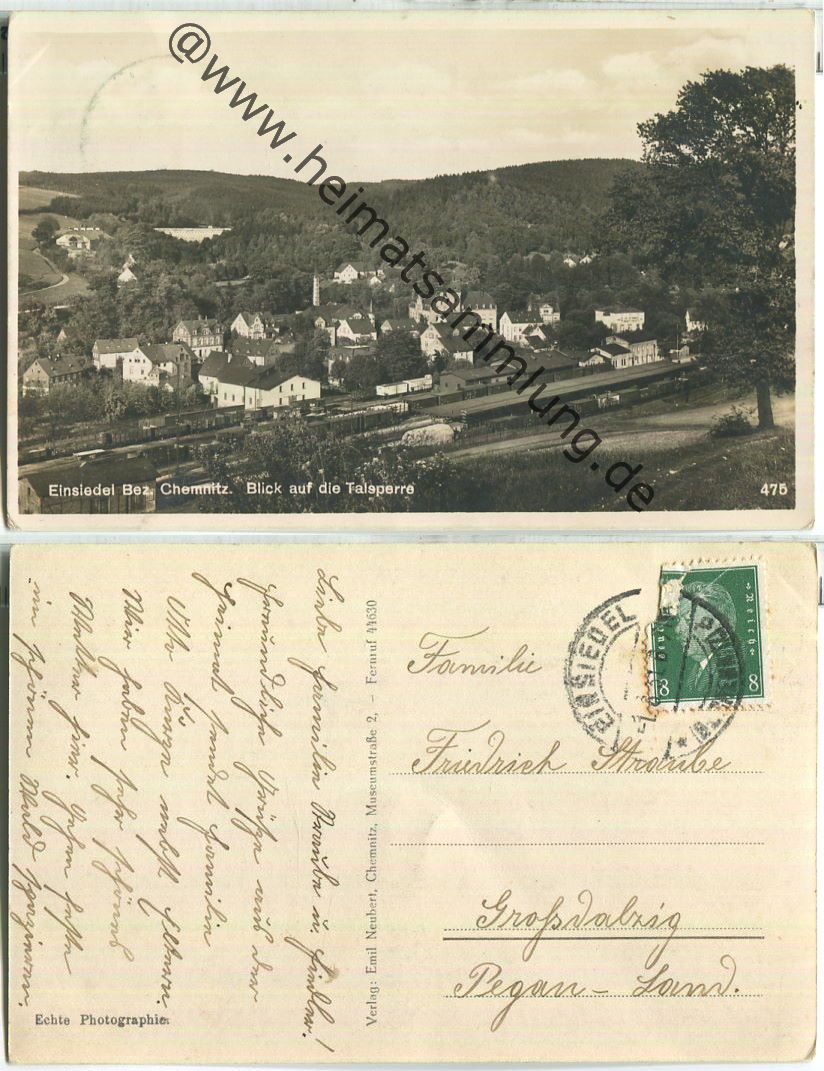 @www.heimatsammlung.de
Einsiedel Bez. Chemnitz. Blick auf die Talsperre
475
Liebe Familie Straube u.
freundliche Grüße aus der
Heimat sendet Familie
Otto Kurze nebst Eltern.
Wir haben sehr schönes
Wetter hier. Gehen heute
in schönen Wald spazieren.
Echte Photographie.
Verlag: Emil Neubert, Chemnitz, Museumstraße 2. – Fernruf 44630
EINSIEDEL
Reich
8 8
Familie
Friedrich Straube
Großdalzig
Pegau - Land.